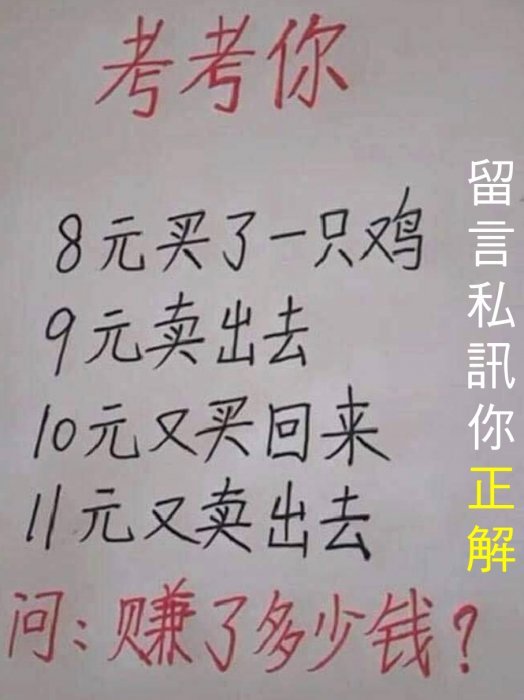 考考你
8元买了一只鸡
9元卖出去
10元又买回来
11元又卖出去
问：赚了多少钱？
留言私訊你正解